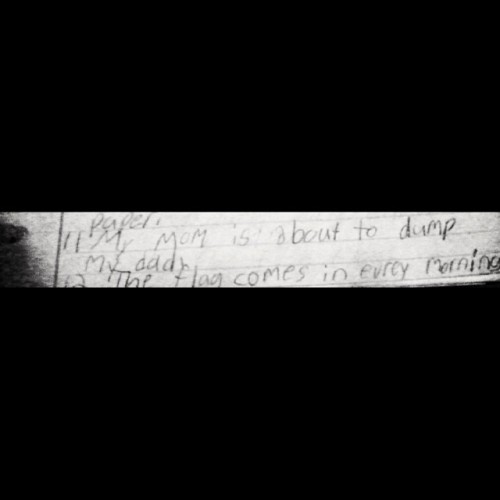 paper.
11 My Mom is about to dump
my dady.
12 The flag comes in evrey morning